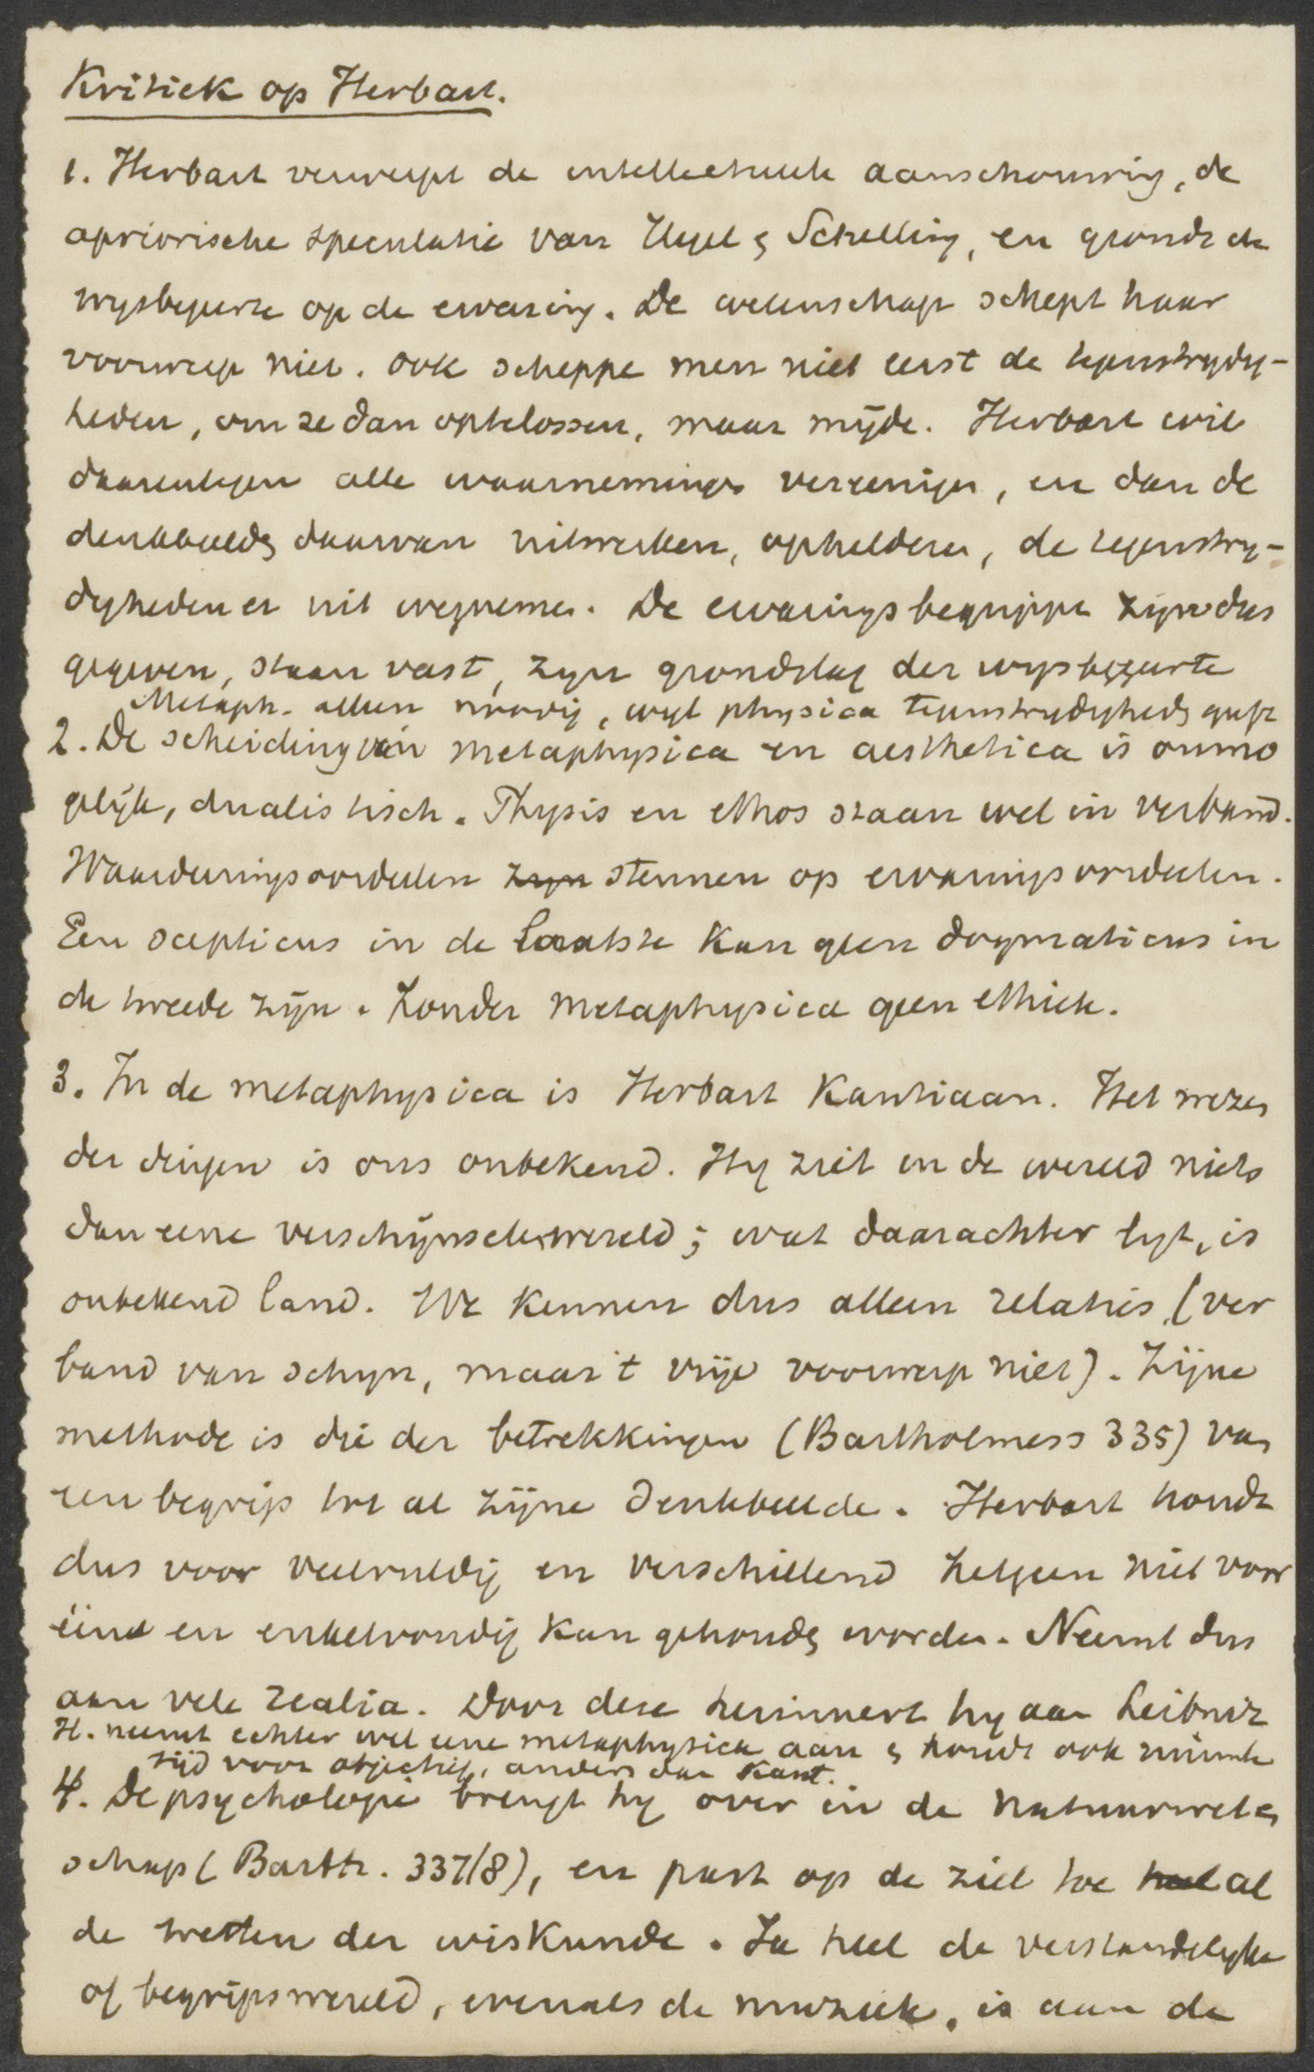 Kritiek op Herbart.
1. Herbart verwerpt de intellectueele aanschouwing, de
apriorische speculatie van Hegel & Schelling, en grondt de
wysbegeerte op de ervaring. De wetenschap schept haar
voorwerp niet. Ook scheppe men niet eerst de tegenstrydig-
heden, om ze dan optelossen, maar mijde. Herbart wil
daarentegen alle waarnemings vereenigen, en dan de
denkbeelds daarvan uitwerken, ophelderen, de tegenstry-
digheden er uit wegnemen. De ervaringsbegrippen zijn dus
gegeven, staan vast, zyn grondslag der wysbegeerte
Metaph. alleen noodig, wyl physica tegenstrydigheds geeft
2. De scheiding van metaphysica en aesthetica is onmo
gelijk, dualistisch. Physis en ethos staan wel in verband.
Waardeeringsoordeelen zyn steunen op ervaringsoordeelen.
Een scepticus in de laatste kan geen dogmaticus in
de tweede zijn. Zonder metaphysica geen ethiek.
3. In de metaphysica is Herbart Kantiaan. Het wezen
der dingen is ons onbekend. Hy ziet in de wereld niets
dan eene verschijnselenwereld; wat daarachter ligt, is
onbekend land. We kennen dus alleen relaties (ver
band van schyn, maar 't vrije voorwerp niet). Zijne
methode is die der betrekkingen (Bartholmess 335) van
een begrip tot al zijne denkbeelden. Herbart houdt
dus voor veelvuldig en verschillend hetgeen niet voor
één en enkelvoudig kan gehouds worden. Neemt dus
aan vele realia. Door deze herinnert hy aan Leibniz
H. neemt echter wel eene metaphysica aan & houdt ook ruimte
tijd voor objectief, anders dan Kant.
4. De psychologie brengt hy over in de natuurweten
schap (Barth. 337/8), en past op de ziel toe heel al
de wetten der wiskunde. Ja heel de verstandelyke
of begripswereld, evenals de muziek, is aan de